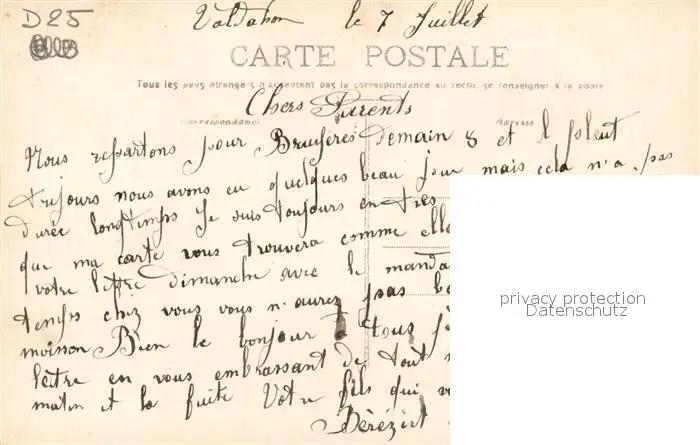 D25
Valdahon le 7 Juillet
CARTE POSTALE
Tous les pays étrangers n'acceptent pas la correspondance au recto, se renseigner à la poste
Correspondance Adresse
Chers Parents
Nous repartons pour Bruyères demain 8 et l pleut
toujours nous avons eu quelques beau jour mais cela n'a pas
durée longtemps Je suis toujours en très
que ma carte vous trouvera comme elle
votre lettre dimanche avec le manda
temps chez vous vous n'aurez pas be
moisson Bien le bonjour à tous j'é
lettre en vous embrassant de tout
matin et la suite Votre fils qui v
privacy protection
Datenschutz